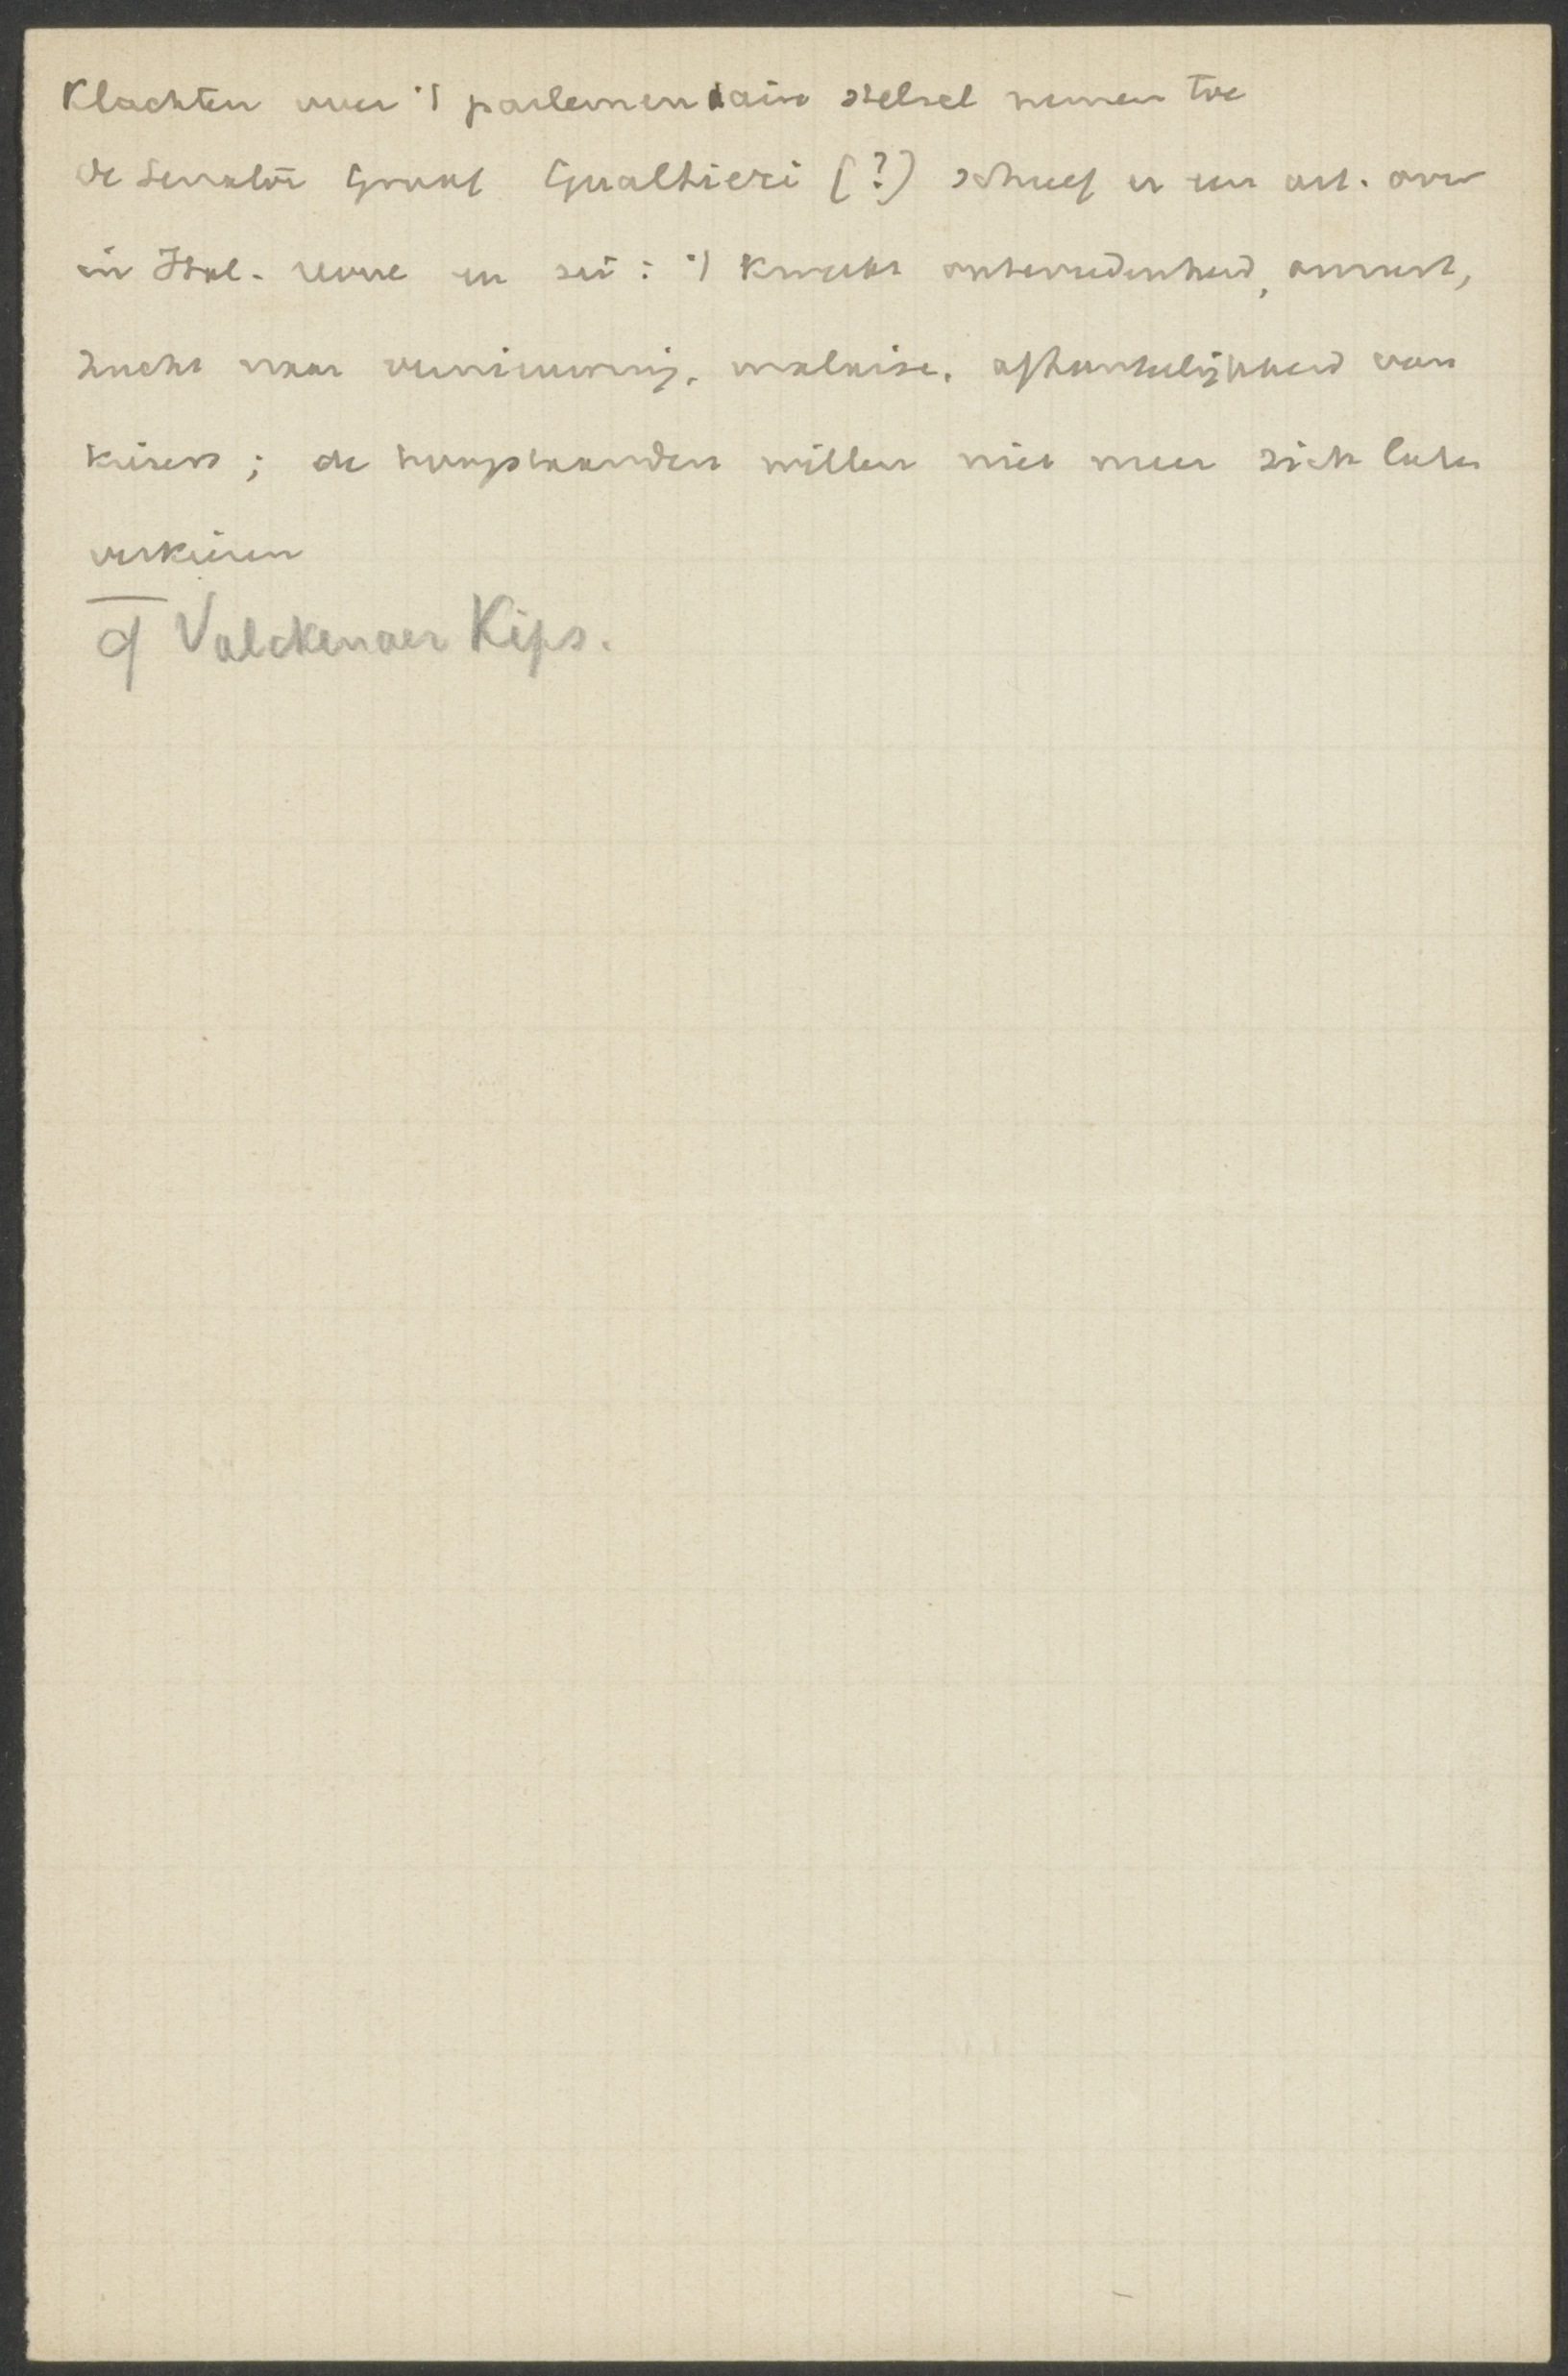 Klachten over 't parlementair stelsel nemen toe
de senator Graaf Gualtieri (?) schreef er een art. over
in Ital. revue en zei: 't kweekt ontevredenheid, onrust,
zucht naar vernieuwing, malaise, afhankelijkheid van
kiezers; de hoogstaanden willen niet meer zich laten
verkiezen
cf Valckenaer Kips.